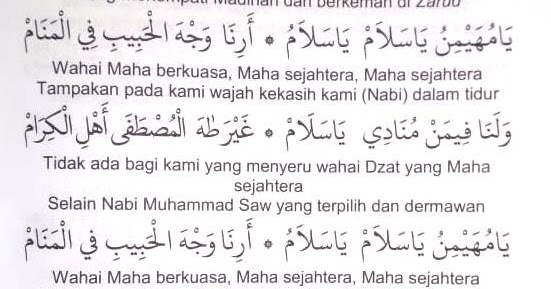 menempati Madinah dan berkemah di Zaruu
يَامُهَيْمِنُ يَاسَلَامْ يَاسَلَامُ • أَرِنَا وَجْهَ الْحَبِيبِ فِي الْمَنَامْ
Wahai Maha berkuasa, Maha sejahtera, Maha sejahtera
Tampakan pada kami wajah kekasih kami (Nabi) dalam tidur
وَلَنَا فِيمَنْ مُنَادِي يَاسَلَامْ • غَيْرَ طٰهَ الْمُصْطَفَى أَهْلِ الْكِرَامْ
Tidak ada bagi kami yang menyeru wahai Dzat yang Maha
sejahtera
Selain Nabi Muhammad Saw yang terpilih dan dermawan
يَامُهَيْمِنُ يَاسَلَامْ يَاسَلَامُ • أَرِنَا وَجْهَ الْحَبِيبِ فِي الْمَنَامْ
Wahai Maha berkuasa, Maha sejahtera, Maha sejahtera